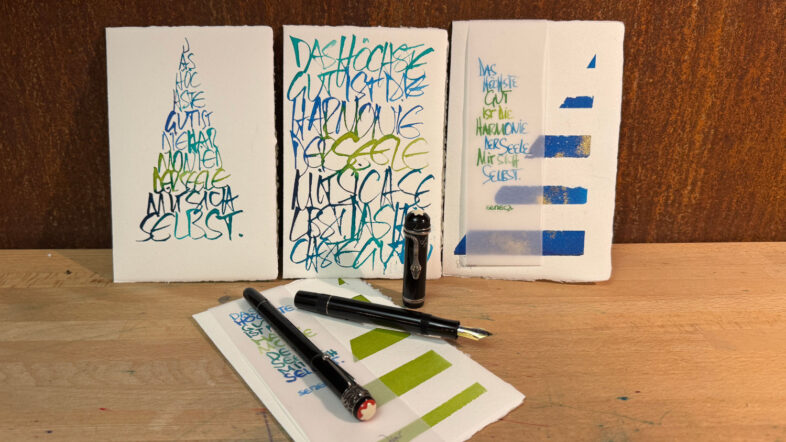 DAS
HÖCH
STE
GUT IST
DIE HAR
MONIE
DER SEELE
MIT SICH
SELBST.
DAS HÖCHSTE
GUT IST DIE
HARMONIE
DER SEELE
MIT SICH SE
LBST. DAS HÖ
CHSTE GUT
DAS
HÖCHSTE
GUT
IST DIE
HARMONIE
DER SEELE
MIT SICH
SELBST.
seneca